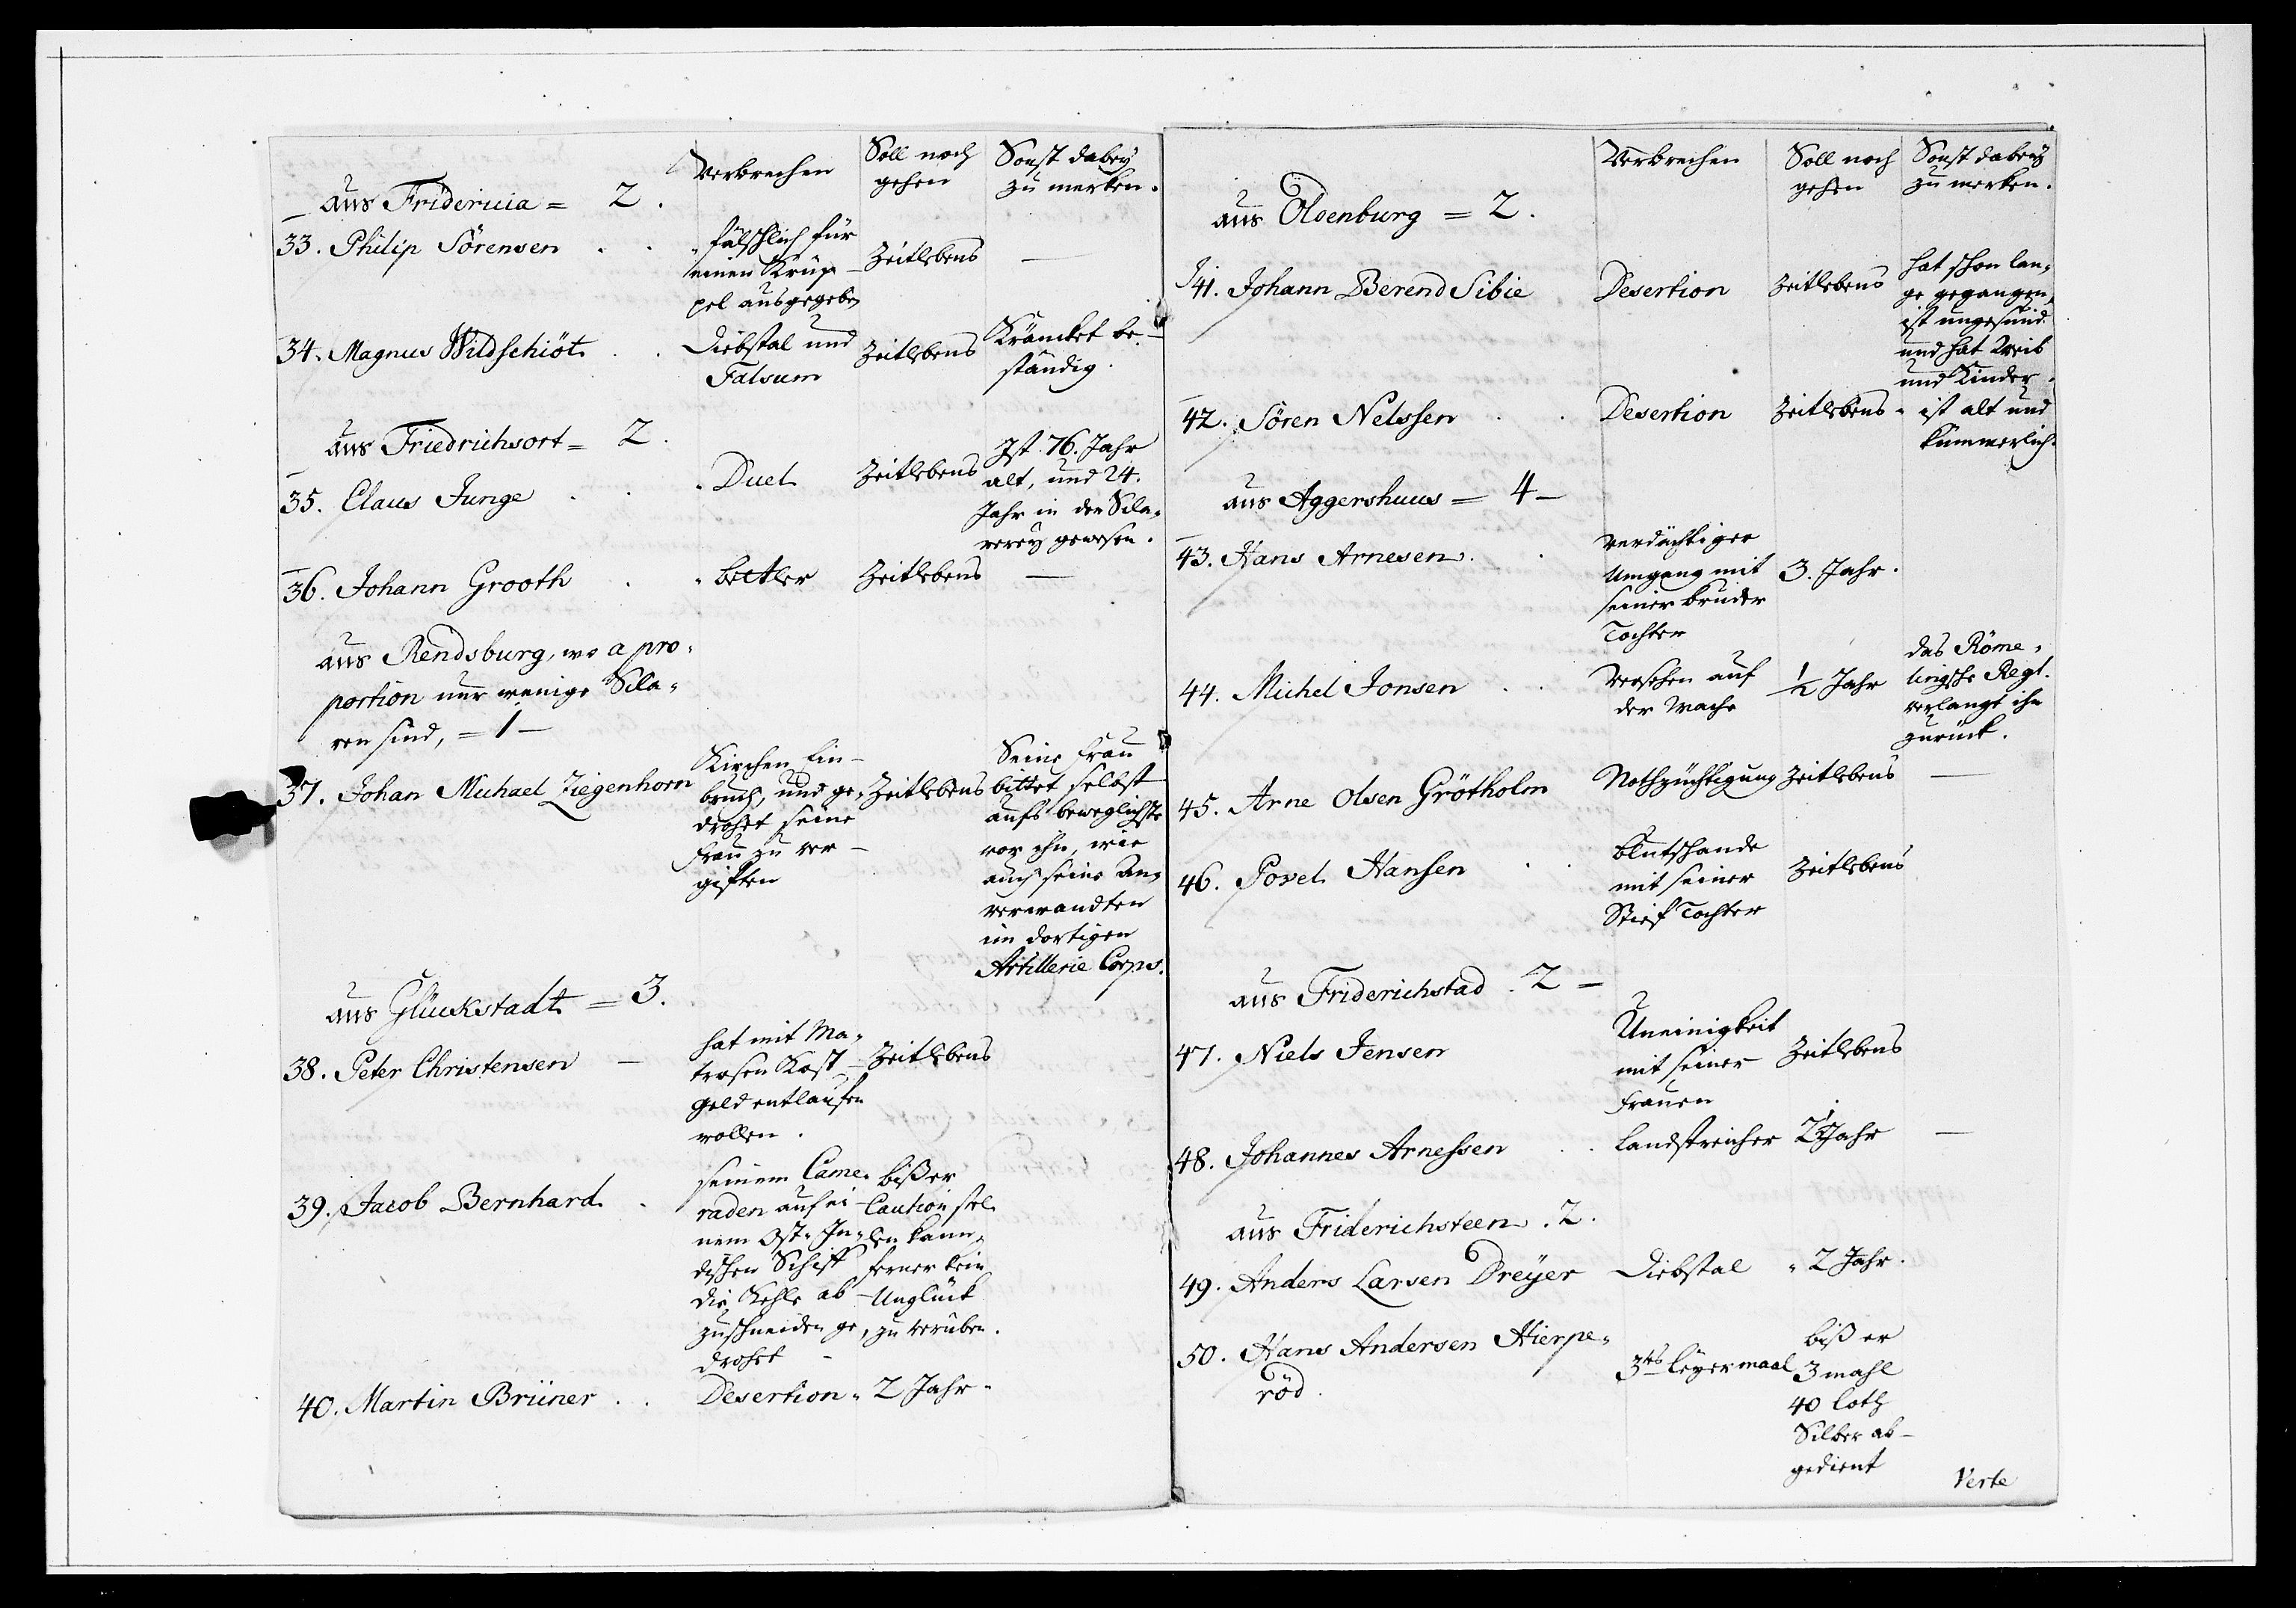 Verbrechen
Soll noch
gehen
Sonst dabey
zu merken.
aus Fridericia = 2.
33. Philip Sörensen
fälschlich für
einen Krüp-
pel ausgegeben
Zeitlebens
—
34. Magnus Wildschiöt
Diebstal und
Falsum
Zeitlebens
Kräncket be-
ständig.
aus Friedrichsort = 2.
35. Claus Junge
Duel
Zeitlebens
Ist 76. Jahr
alt, und 24.
Jahr in der Scla-
verey gewesen.
36. Johann Grooth
bettler
Zeitlebens
—
aus Rendsburg, wo a pro-
portion nur wenige Scla-
ven sind, = 1 —
37. Johan Michael Ziegenhorn
Kirchen Ein-
bruch, und ge-
drohet seine
Frau zu ver-
giften
Zeitlebens
Seine Frau
bittet selbst
aufs beweglichste
vor ihn, wie
auch seine An-
verwandten
im dortigen
Artillerie Corps.
aus Glückstadt = 3.
38. Peter Christensen —
hat mit Ma-
trosen Kost-
geld entlaufen
wollen.
Zeitlebens
39. Jacob Bernhard
seinem Came-
raden auf ei-
nem Ost-In-
dischen Schiff
die Kehle ab-
zuschneiden ge-
drohet
biß er
Caution stel-
len kann,
ferner kein
Unglück
zu verüben.
40. Martin Brüner
Desertion
2 Jahr.
Verbrechen
Soll noch
gehen
Sonst dabey
zu merken.
aus Oldenburg = 2.
41. Johann Berend Sibie
Desertion
Zeitlebens
hat schon lan-
ge gegangen,
ist ungesund
und hat Weib
und Kinder.
42. Sören Nelssen
Desertion
Zeitlebens
ist alt und
kümmerlich.
aus Aggershuus = 4 —
43. Hans Arnesen
verdächtiger
Umgang mit
seiner bruder
Tochter
3. Jahr.
44. Michel Jonsen
Versehen auf
der Wache
1/2 Jahr
das Röme-
lingsche Regt.
verlangt ihn
zurück.
45. Arne Olsen Grötholm
Nothzüchtigung
Zeitlebens
—
46. Povel Hansen
blutschande
mit seiner
Stief Tochter
Zeitlebens
aus Friderichstad. 2 =
47. Niels Jensen
Uneinigkeit
mit seiner
Frauen
Zeitlebens
48. Johannes Arnessen
Landstreicher
Jahr
—
aus Friderichsteen. 2.
49. Anders Larsen Dreÿer
Diebstal
2 Jahr.
50. Hans Andersen Hierpe-
röd.
3tes leyermaal
biß er
3 mahl
40 loth
Silber ab-
gedient
Verte